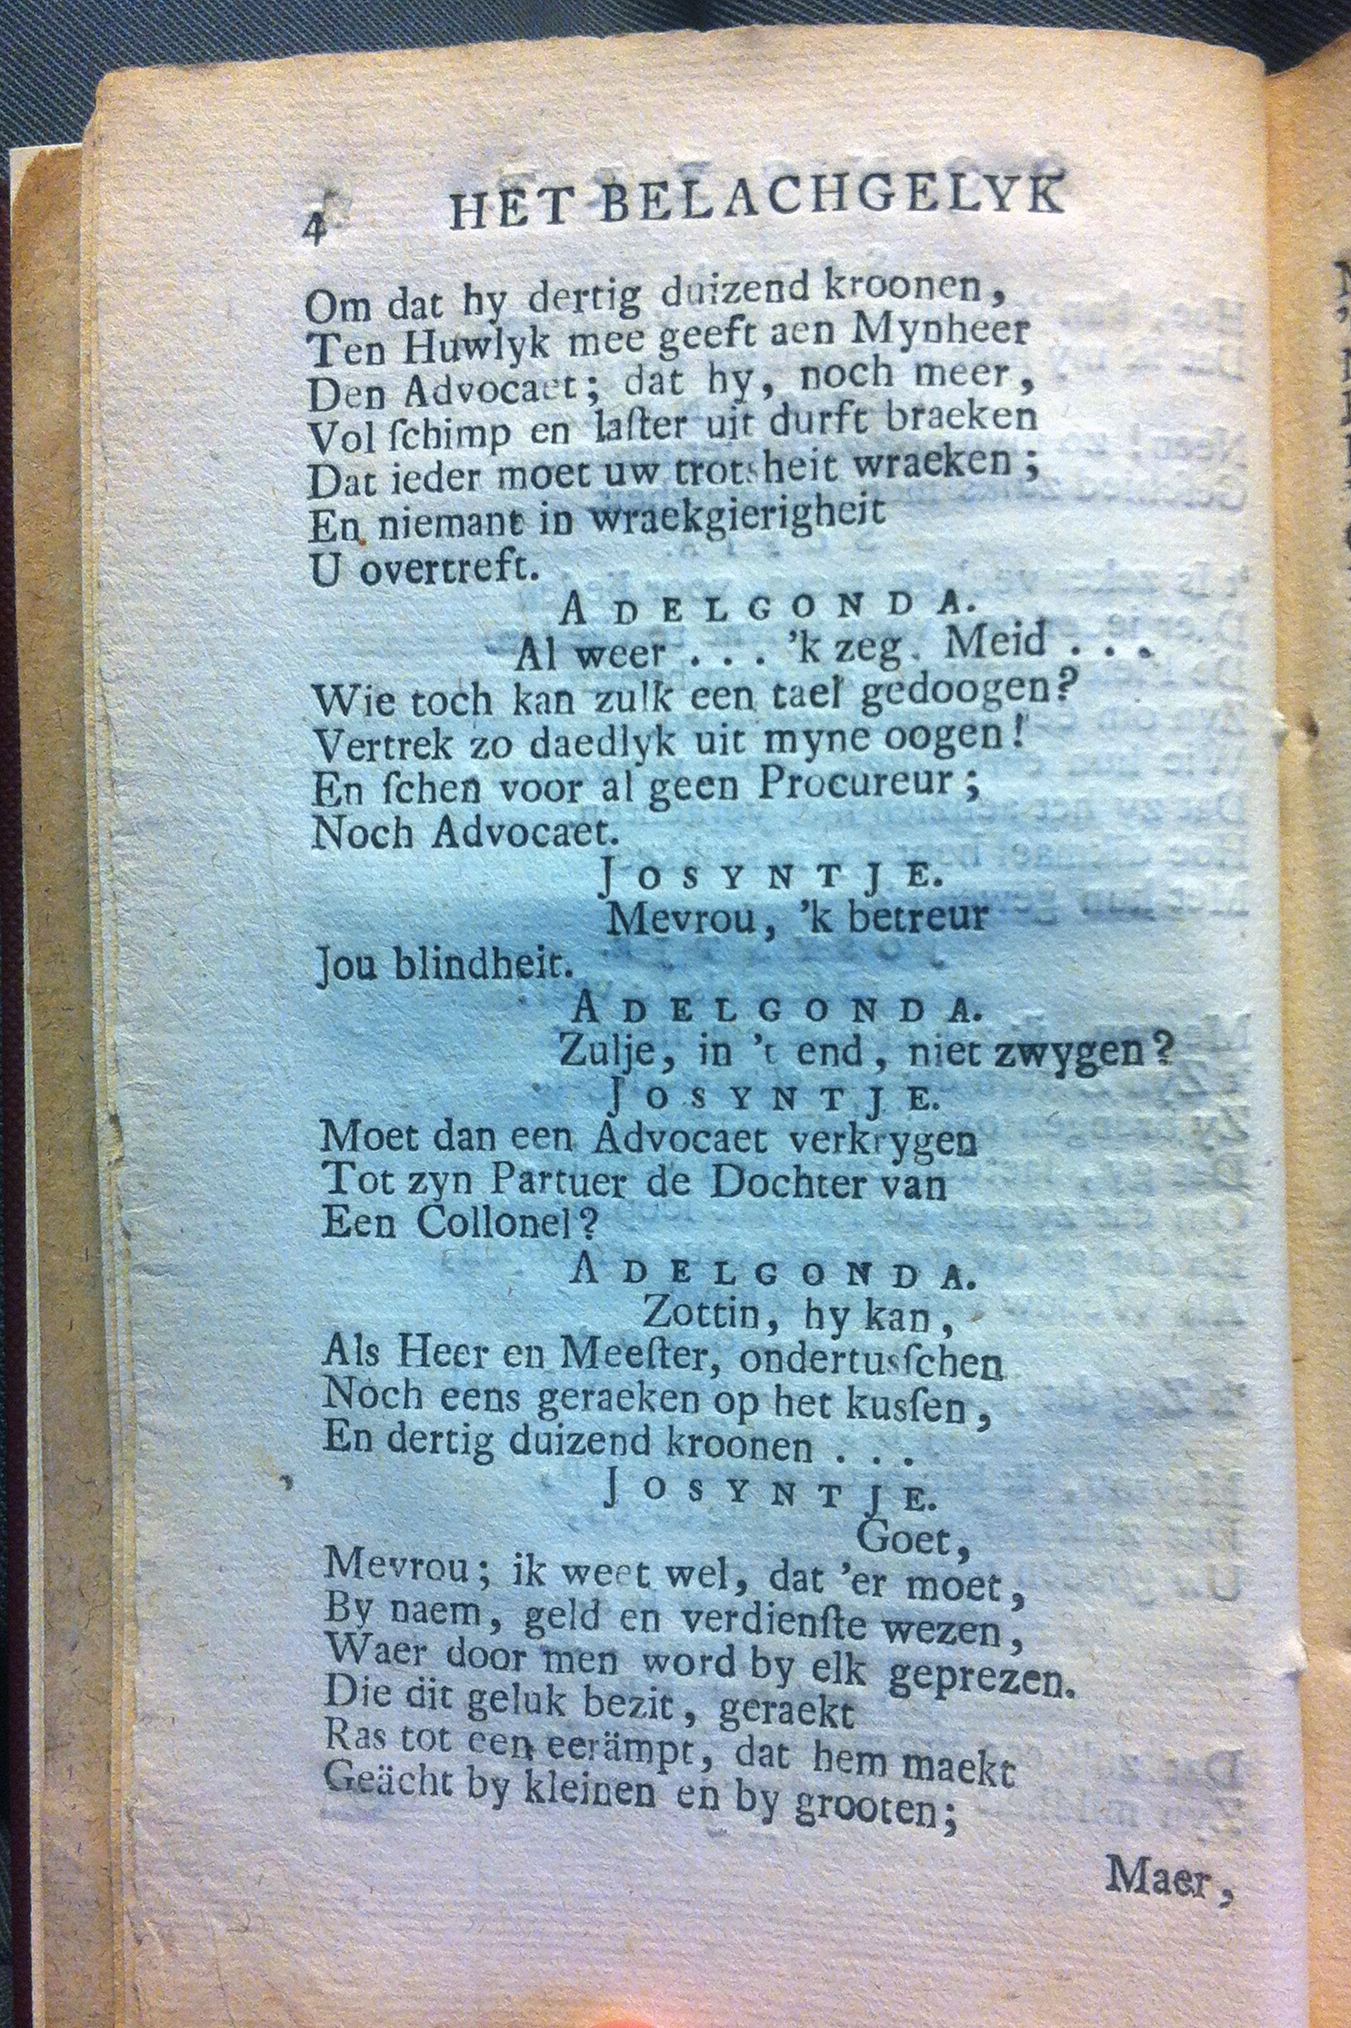 4 HET BELACHGELYK
Om dat hy dertig duizend kroonen,
Ten Huwlyk mee geeft aen Mynheer
Den Advocaet; dat hy, noch meer,
Vol ſchimp en laſter uit durft braeken
Dat ieder moet uw trotsheit wraeken;
En niemant in wraekgierigheit
U overtreft.
ADELGONDA.
Al weer . . . 'k zeg. Meid . . .
Wie toch kan zulk een tael gedoogen?
Vertrek zo daedlyk uit myne oogen!
En ſchen voor al geen Procureur;
Noch Advocaet.
JOSYNTJE.
Mevrou, 'k betreur
Jou blindheit.
ADELGONDA.
Zulje, in 't end, niet zwygen?
JOSYNTJE.
Moet dan een Advocaet verkrygen
Tot zyn Partuer de Dochter van
Een Collonel?
ADELGONDA.
Zottin, hy kan,
Als Heer en Meeſter, ondertusſchen
Noch eens geraeken op het kusſen,
En dertig duizend kroonen . . .
JOSYNTJE.
Goet,
Mevrou; ik weet wel, dat 'er moet,
By naem, geld en verdienſte wezen,
Waer door men word by elk geprezen.
Die dit geluk bezit, geraekt
Ras tot een eerämpt, dat hem maekt
Geächt by kleinen en by grooten;
Maer,